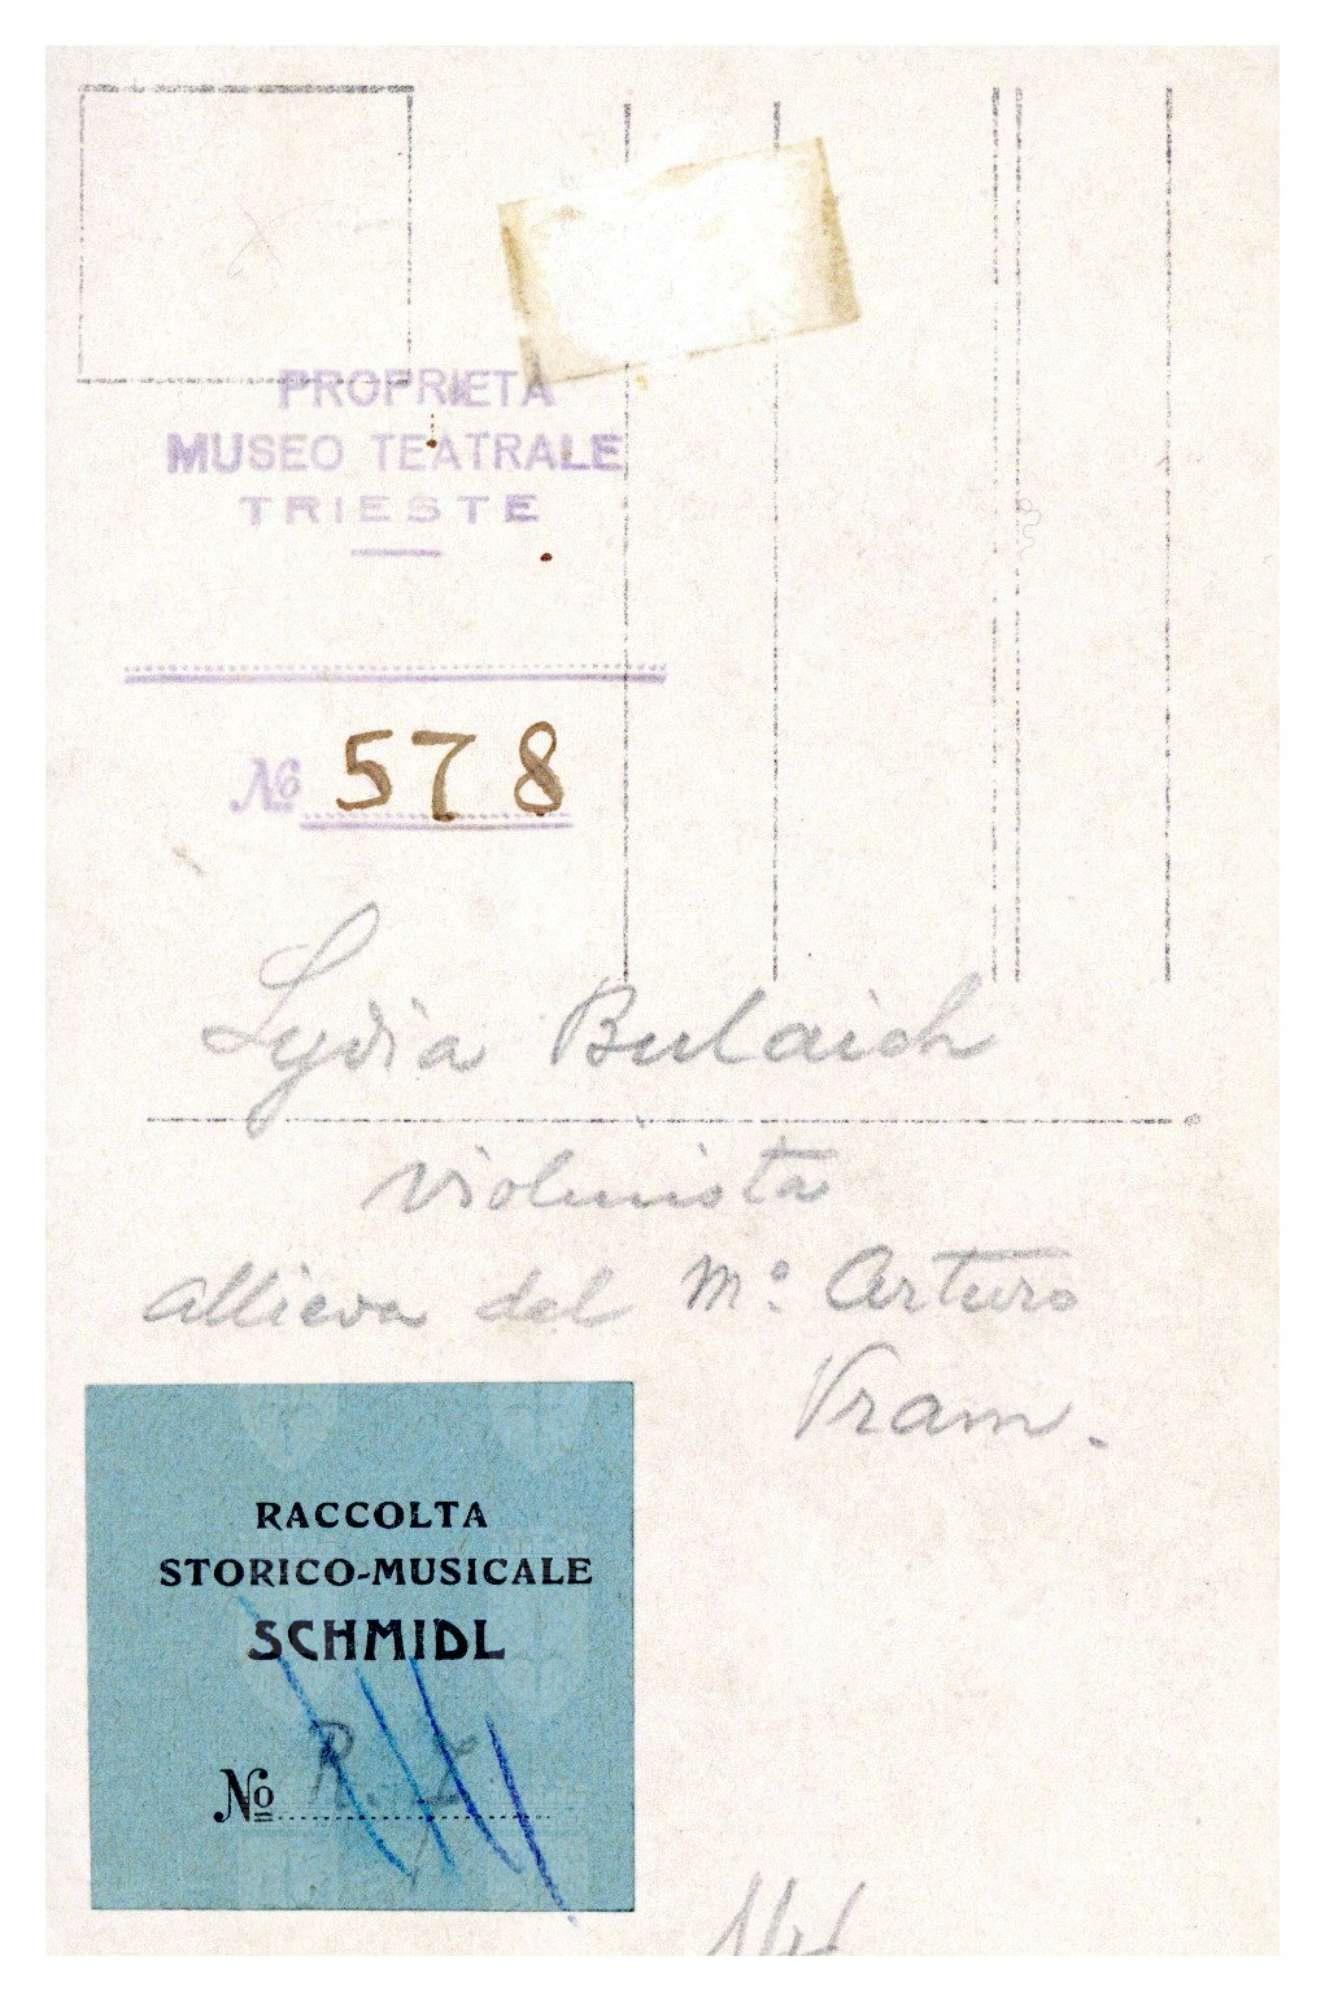 PROPRIETA
MUSEO TEATRALE
TRIESTE
No 578
Lydia Bulaich
violinista
allieva del Mº: Arturo
Vram.
RACCOLTA
STORICO-MUSICALE
SCHMIDL
No R.